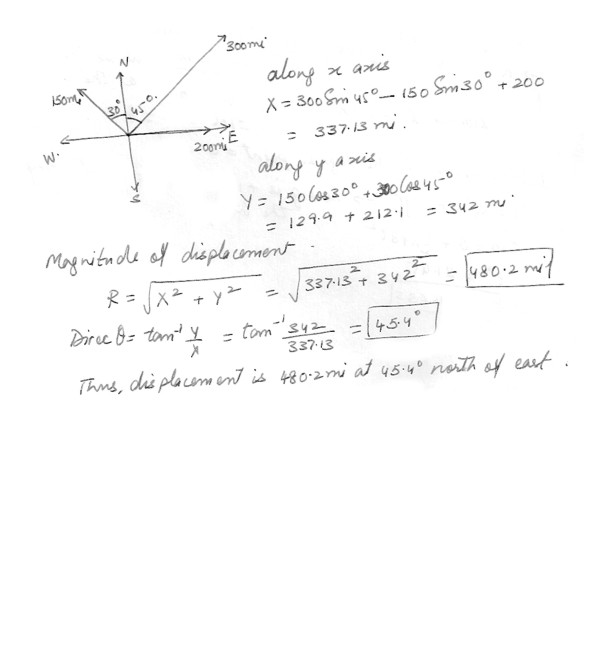 300mi
N
150mi
30°
45°
W.
200mi E
S
along x axis
X = 300 Sin 45° - 150 Sin 30° + 200
= 337.13 mi.
along y axis
Y = 150 Cos 30° + 300 Cos 45°
= 129.9 + 212.1 = 342 mi
Magnitude of displacement.
R = √X² + Y² = √337.13² + 342² = 480.2 mi
Direc θ = tan⁻¹ Y/X = tan⁻¹ 342/337.13 = 45.4°
Thus, displacement is 480.2 mi at 45.4° north of east.